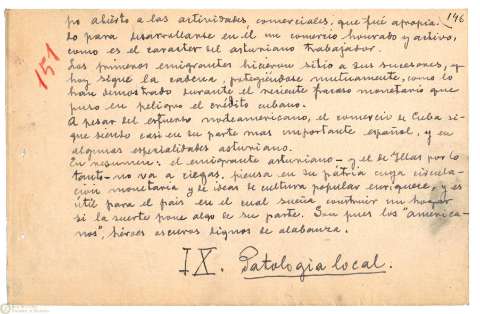 146
151
po abierto a las actividades comerciales, que fué apropia-
do para desarrollarse en él un comercio honrado y activo,
como es el caracter del asturiano trabajador.
Los primeros emigrantes hicieron sitio a sus sucesores, y
hoy sigue la cadena, protegiéndose mutuamente, como lo
han demostrado durante el reciente fracaso monetario que
puso en peligro el crédito cubano.
A pesar del esfuerzo norteamericano, el comercio de Cuba si-
gue siendo casi en su parte mas importante español, y en
algunas especialidades asturiano.
En resumen: el emigrante asturiano - y el de Illas por lo
tanto - no va a ciegas, piensa en su pátria cuya circula-
ción monetaria y de ideas de cultura popular enriquece, y es
útil para el país en el cual sueña construir un hogar
si la suerte pone algo de su parte. Son pues los "america-
nos", héroes oscuros dignos de alabanza.
IX. Patologia local.